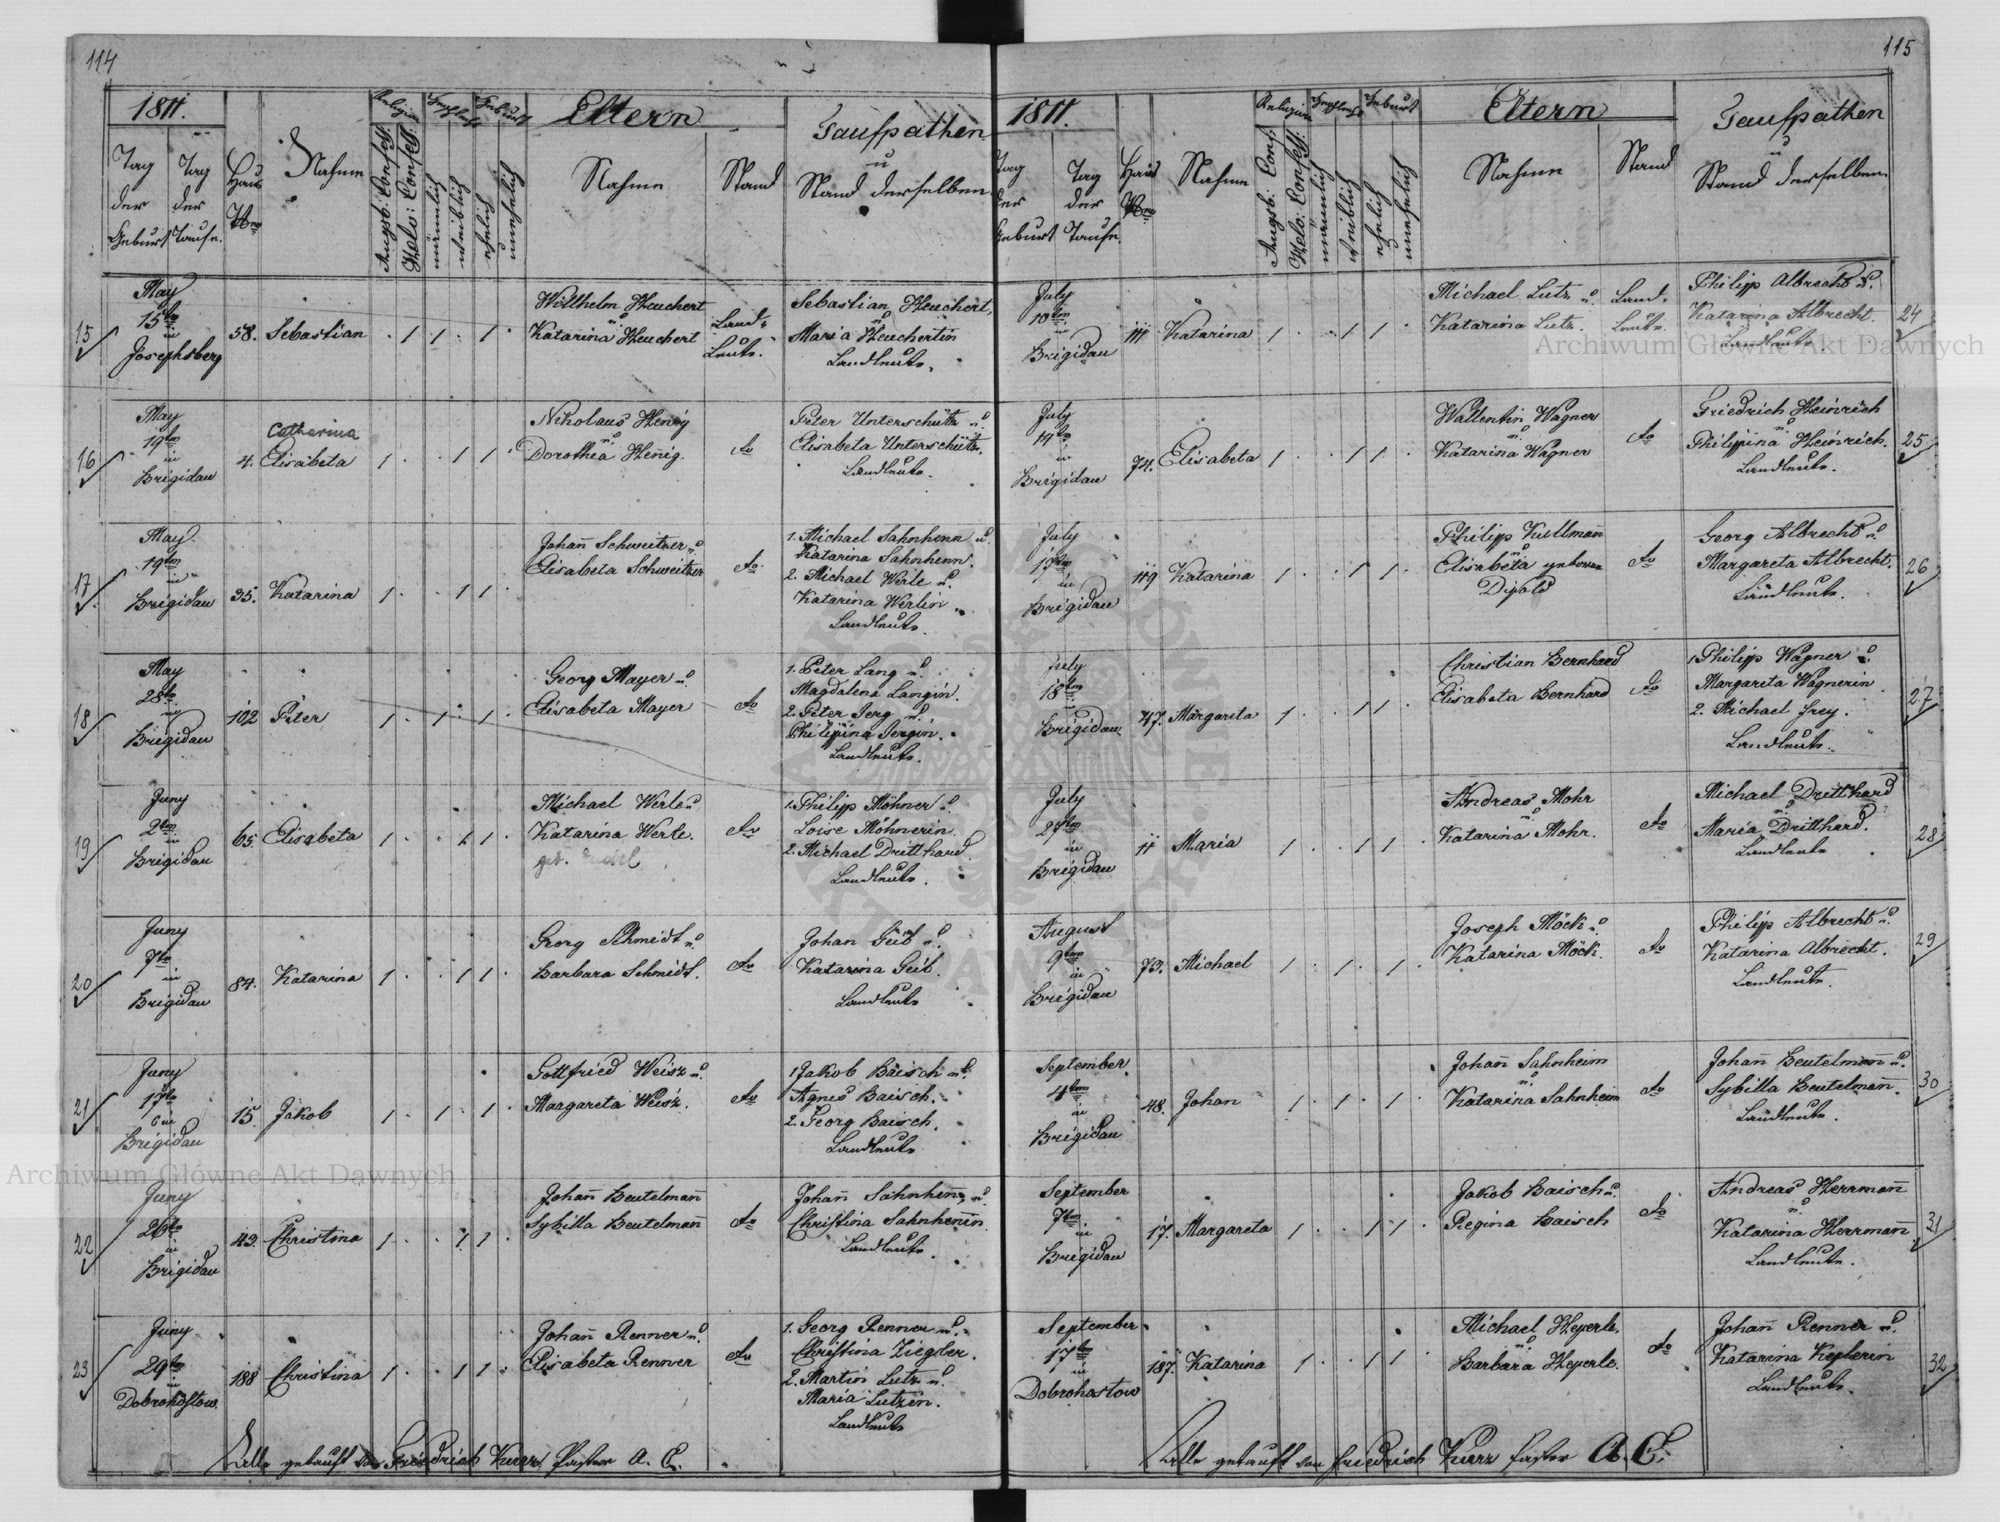 114
1811.
Religion
Geschlecht
Geburt
Eltern
Taufpathen
u
Stand derselben
Tag der Geburt
Tag der Taufe.
Haus Nro
Nahme
Augsb: Confess:
Helv: Confess:
männlich
weiblich
ehelich
unehelich
Nahme
Stand
15
May
15ten
in
Josephsberg
58. Sebastian
1 1 1
Willhelm Heuchert
u.
Katarina Heuchert
Land-
Leute.
Sebastian Heuchert,
u.
Maria Heuchertin
Landleute.
16
May
19ten
in
Brigidau
Catharina
4. Elisabeta
1 1 1
Nikolaus Henig
u.
Dorothea Henig.
do
Peter Unterschütz u.
Elisabeta Unterschütz.
Landleute.
17
May
19ten
in
Brigidau
35. Katarina
1 1 1
Johan̄ Schweitzer u.
Elisabeta Schweitzer
do
1. Michael Sahnhenn u.
Katarina Sahnhenn.
2. Michael Werle u.
Katarina Werlin.
Landleute.
18
May
28ten
in
Brigidau
102 Peter
1 1 1
Georg Mayer u.
Elisabeta Mayer
do
1. Peter Lang u.
Magdalena Langin.
2. Peter Jerg u.
Philippina Jergin.
Landleute.
19
Juny
2ten
in
Brigidau
65. Elisabeta
1 1 1
Michael Werle u
Katarina Werle.
geb.
do
1. Philipp Möhner u.
Loise Möhnerin.
2. Michael Dritthard.
Landleute.
20
Juny
7ten
in
Brigidau
84. Katarina
1 1 1
Georg Schmidt u.
Barbara Schmidt.
do
Johan Geib u.
Katarina Geib.
Landleute
21
Juny
17ten
in
Brigidau
15. Jakob
1 1 1
Gottfried Weisz u.
Margareta Weisz.
do
1. Jakob Baisch u.
Agnes Baisch.
2. Georg Baisch.
Landleute
22
Juny
26ten
in
Brigidau
43. Christina
1 1 1
Johan̄ Beutelman̄
Sybilla Beutelman̄
do
Johan̄ Sahnhen̄ u
Christina Sahnhen̄in.
Landleute.
23
Juny
29ten
in
Dobrohostow.
188 Christina
1 1 1
Johan̄ Renner u.
Elisabeta Renner
do
1. Georg Renner u.
Christina Ziegler.
2. Martin Lutz u.
Maria Lutzin.
Landleute
Alle getauft von Friedrich Kurz Pastor A. C.
115
1811.
Religion
Geschlecht
Geburt
Eltern
Taufpathen
u
Stand derselben.
Tag der Geburt
Tag der Taufe.
Haus Nro
Nahme
Augsb: Conf:
Helv: Confess:
männlich
weiblich
ehelich
unehelich
Nahme
Stand
July
10ten
in
Brigidau
111 Katarina
1 1 1
Michael Lutz u.
Katarina Lutz.
Land-
Leute.
Philipp Albrecht u.
Katarina Albrecht.
Landleute
24
July
11ten
in
Brigidau
74. Elisabeta
1 1 1
Wallentin Wagner
u.
Katarina Wagner
do
Friedrich Heinrich
u.
Philipina Heinrich.
Landleute.
25
July
17ten
in
Brigidau
119 Katarina
1 1 1
Philipp Kullman̄
u.
Elisabeta geborene
Dipold
do
Georg Albrecht u
Margareta Albrecht.
Landleute.
26
July
18ten
in
Brigidau
47. Margareta
1 1 1
Christian Bernhard
Elisabeta Bernhard
do
1. Philipp Wagner u.
Margareta Wagnerin
2. Michael Frey.
Landleute.
27
July
27ten
in
Brigidau
11 Maria
1 1 1
Andreas Mohr
u.
Katarina Mohr.
do
Michael Dritthard
u
Maria Dritthard.
Landleute
28
August
9ten
in
Brigidau
73. Michael
1 1 1
Joseph Möck u.
Katarina Möck.
do
Philipp Albrecht u.
Katarina Albrecht.
Landleute.
29
September
4ten
in
Brigidau
48. Johan
1 1 1
Johan̄ Sahnheim
u.
Katarina Sahnheim
do
Johan Beutelman u.
Sybilla Beutelman̄.
Landleute.
30
September
7ten
in
Brigidau
17. Margareta
1 1 1
Jakob Baisch u.
Regina Baisch
do
Andreas Herrman̄
u.
Katarina Herrman̄
Landleute.
31
September
17ten
in
Dobrohostow
187. Katarina
1 1 1
Michael Heyerle.
u
Barbara Heyerle.
do
Johan̄ Renner u.
Katarina Keplerin
Landleute.
32
Alle getauft von Friedrich Kurz Pastor A. C.
Archiwum Główne Akt Dawnych
Archiwum Główne Akt Dawnych